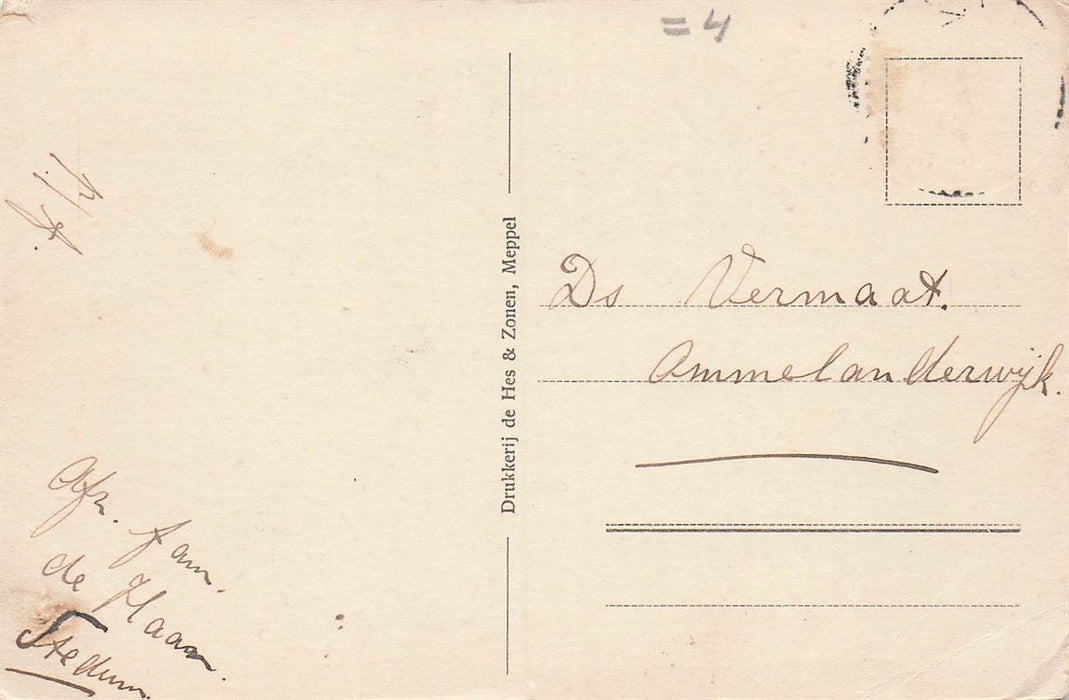 = 4
p. f.
Drukkerij de Hes & Zonen, Meppel
Ds Vermaat.
Ommelanderwijk.
Afz. fam.
de Haan.
Stedum.